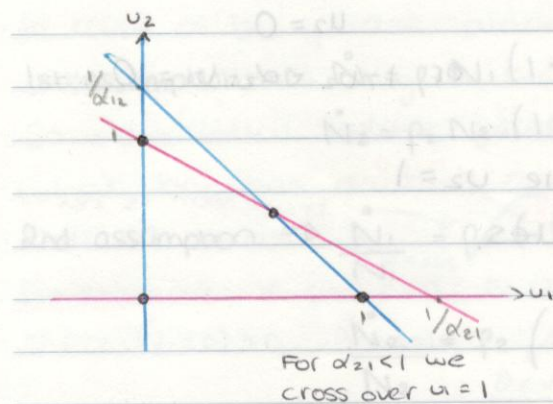 u₂
1/α₁₂
1
u₁
1
1/α₂₁
For α₂₁<1 we
cross over u₁=1